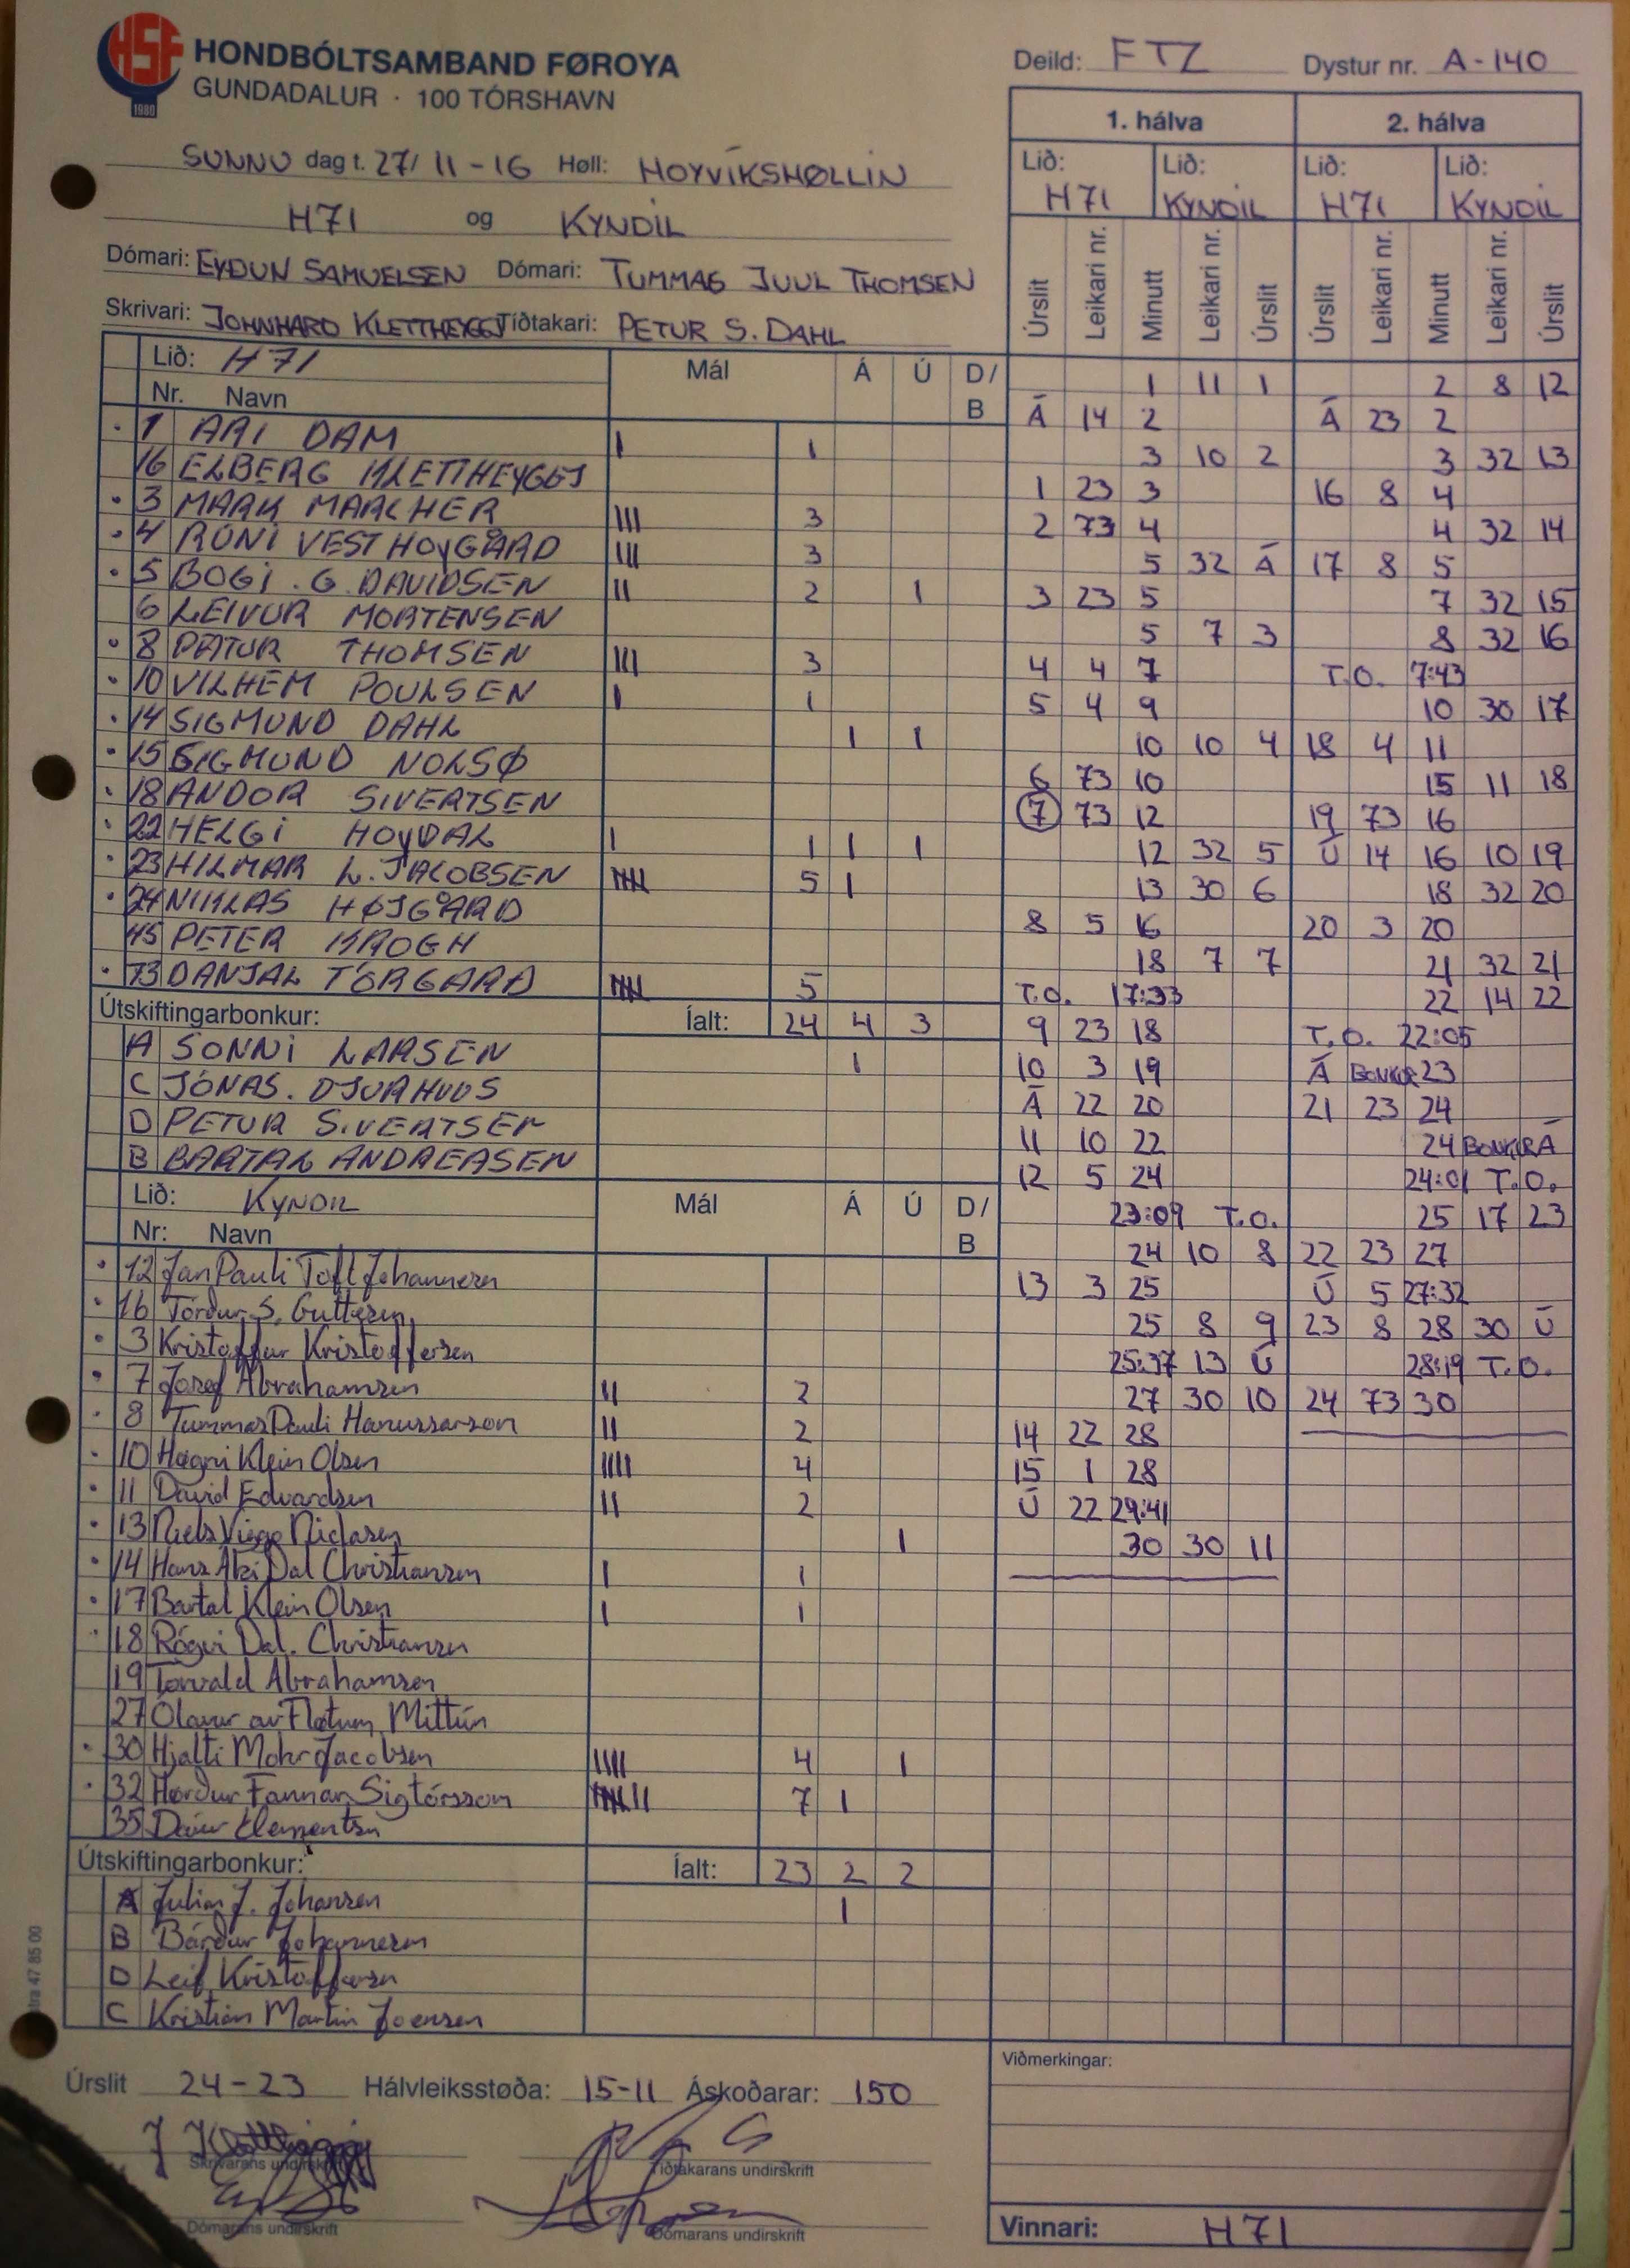 HSF
1980
HONDBÓLTSAMBAND FØROYA
GUNDADALUR · 100 TÓRSHAVN
Deild: FTZ Dystur nr. A-140
SUNNU dag t. 27/11-16 Høll: HOYVÍKSHØLLIN
H71 og KYNDIL
Dómari: EYÐUN SAMUELSEN Dómari: TUMMAS JUUL THOMSEN
Skrivari: JOHNHARD KLETTHEYGGJ Tíðtakari: PETUR S. DAHL
Lið: H71 Mál Á Ú D/B
Nr. Navn
1 ARI DAM I 1
16 ELBERG KLETTHEYGGJ
3 MARK MARCHER III 3
4 RÚNI VESTHOYGÅRD III 3
5 BOGI. G. DAVIDSEN II 2 1
6 LEIVUR MORTENSEN
8 PÆTUR THOMSEN III 3
10 VILHEM POULSEN I 1
14 SIGMUND DAHL 1 1
15 SIGMUND NOLSØ
18 ANDOR SIVERTSEN
22 HELGI HOYDAL I 1 1 1
23 HILMAR L. JACOBSEN IIIII 5 1
24 NIKLAS HØJGÅRD
45 PETER KROGH
73 DANJAL TÓRGARÐ IIIII 5
Útskiftingarbonkur: Íalt: 24 4 3
A SONNI LARSEN 1
C JÓNAS. DJURHUUS
D PETUR SIVERTSEN
B BARTAL ANDREASEN
Lið: KYNDIL Mál Á Ú D/B
Nr: Navn
12 Jan Pauli Toft Johannesen
16 Tórður S. Guttesen
3 Kristoffur Kristoffersen
7 Jósef Abrahamsen II 2
8 Tummas Pauli Hanussarson II 2
10 Høgni Klein Olsen IIII 4
11 Dávid Edvardsen II 2
13 Niels Viggo Niclasen 1
14 Hans Áki Dal Christiansen I 1
17 Bartal Klein Olsen I 1
18 Rógvi Dal. Christiansen
19 Torvald Abrahamsen
27 Ólavur av Fløtum Mittún
30 Hjalti Mohr Jacobsen IIII 4 1
32 Hørður Fannar Sigtórsson IIIIIII 7 1
35 Dávur Clementsen
Útskiftingarbonkur: Íalt: 23 2 2
A Julian J. Johansen 1
B Bárður Johannesen
D Leif Kristoffersen
C Kristian Martin Joensen
1. hálva 2. hálva
Lið: H71 Lið: KYNDIL Lið: H71 Lið: KYNDIL
Úrslit Leikari nr. Minutt Leikari nr. Úrslit Úrslit Leikari nr. Minutt Leikari nr. Úrslit
1 11 1 2 8 12
Á 14 2 Á 23 2
3 10 2 3 32 13
1 23 3 16 8 4
2 73 4 4 32 14
5 32 Á 17 8 5
3 23 5 7 32 15
5 7 3 8 32 16
4 4 7 T.O. 7:43
5 4 9 10 30 17
10 10 4 18 4 11
6 73 10 15 11 18
7 73 12 19 73 16
12 32 5 Ú 14 16 10 19
13 30 6 18 32 20
8 5 16 20 3 20
18 7 7 21 32 21
T.O. 17:33 22 14 22
9 23 18 T.O. 22:05
10 3 19 Á BONKUR 23
Á 22 20 21 23 24
11 10 22 24 BONKUR Á
12 5 24 24:01 T.O.
23:09 T.O. 25 17 23
24 10 8 22 23 27
13 3 25 Ú 5 27:32
25 8 9 23 8 28 30 Ú
25:37 13 Ú 28:19 T.O.
27 30 10 24 73 30
14 22 28
15 1 28
Ú 22 29:41
30 30 11
tra 47 85 00
Úrslit 24-23 Hálvleiksstøða: 15-11 Áskoðarar: 150
Skrivarans undirskrift Tíðtakarans undirskrift
Dómarans undirskrift Dómarans undirskrift
Viðmerkingar:
Vinnari: H71